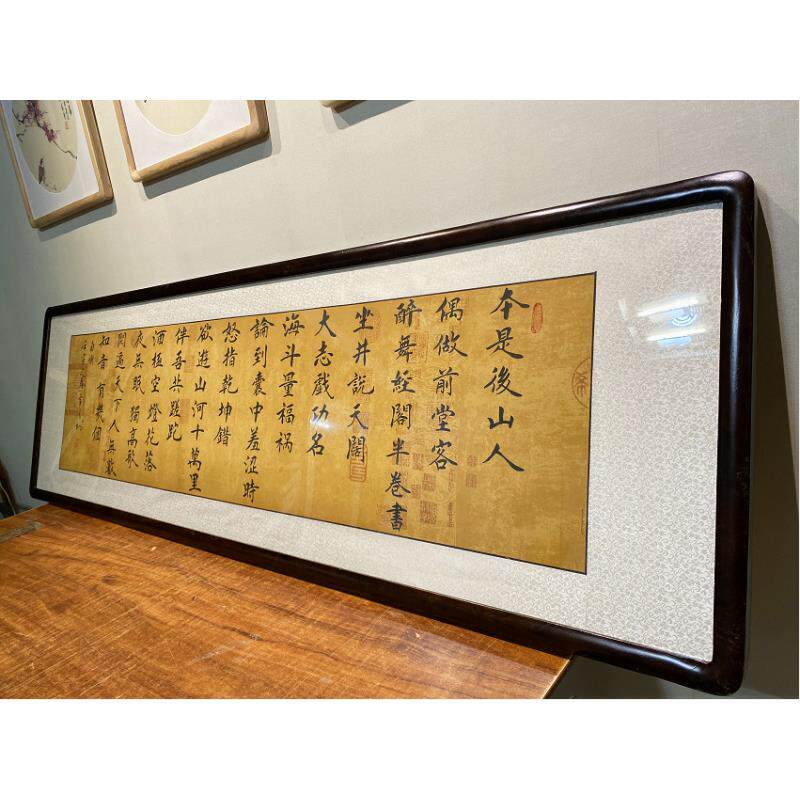 本是後山人
偶做前堂客
醉舞經閣半卷書
坐井說天闊
大志戲功名
海斗量福祸
論到囊中羞澀時
怒指乾坤錯
欲遊山河十萬里
伴吾共蹉跎
酒極空燈花落
夜無眠獨高歌
遍天下人無數
知音有幾個
自嘲